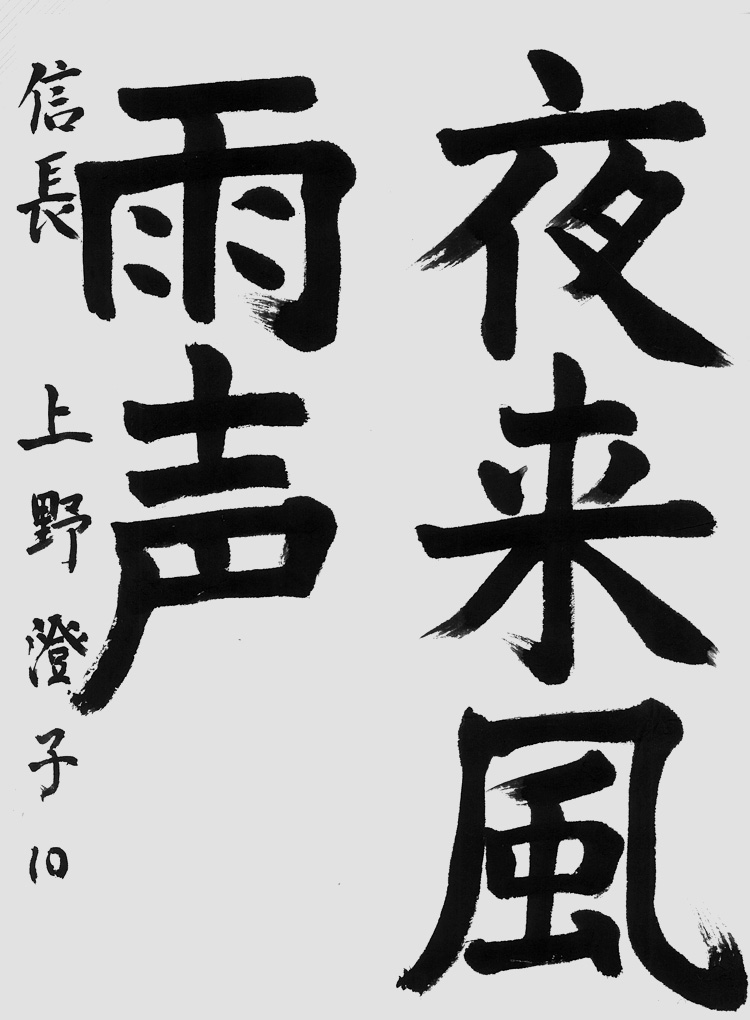 夜来風
雨声
信長 上野澄子 10